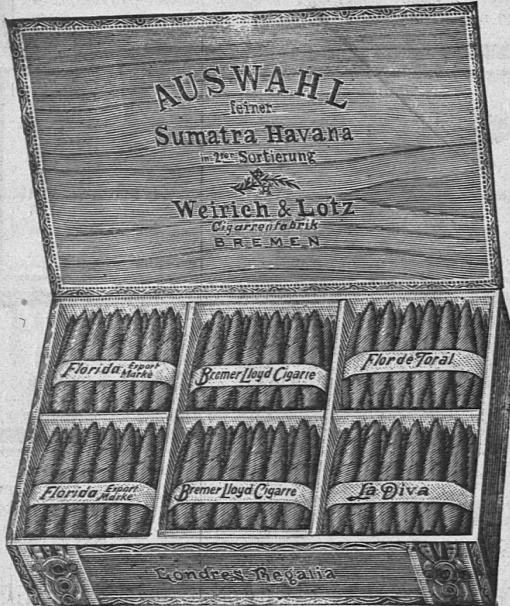 AUSWAHL
feiner
Sumatra Havana
in 2ter Sortierung
Weirich & Lotz
Cigarrenfabrik
BREMEN
Florida Export Marke
Bremer Lloyd Cigarre
Flor de Toral
Florida Export Marke
Bremer Lloyd Cigarre
La Diva
Londres-Regalia